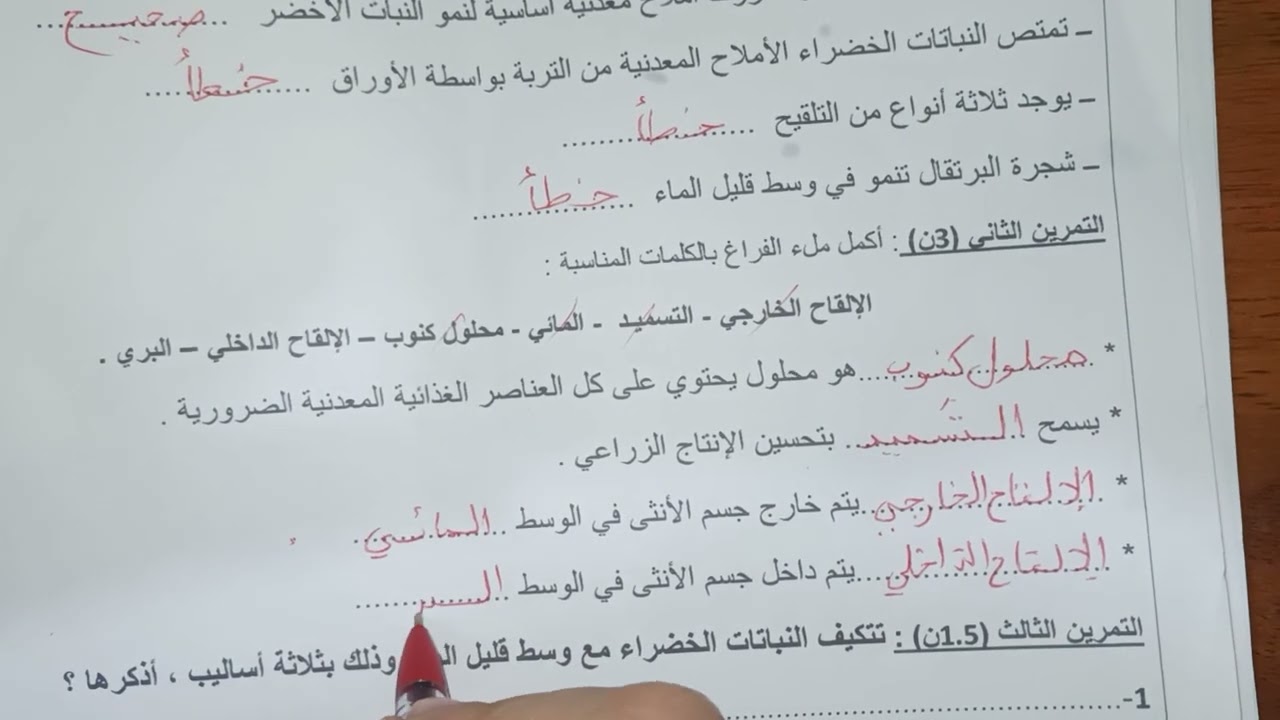 أملاح معدنية أساسية لنمو النبات الأخضر ...صحيح...
ـ تمتص النباتات الخضراء الأملاح المعدنية من التربة بواسطة الأوراق ...خطأ...
ـ يوجد ثلاثة أنواع من التلقيح ...خطأ...
ـ شجرة البرتقال تنمو في وسط قليل الماء ...خطأ...
التمرين الثاني (3ن) : أكمل ملء الفراغ بالكلمات المناسبة :
الإلقاح الخارجي - التسميد - المائي - محلول كنوب – الإلقاح الداخلي – البري .
* محلول كنوب....هو محلول يحتوي على كل العناصر الغذائية المعدنية الضرورية .
* يسمح التسميد.. بتحسين الإنتاج الزراعي .
* الإلقاح الخارجي..يتم خارج جسم الأنثى في الوسط ..المائي.
* الإلقاح الداخلي....يتم داخل جسم الأنثى في الوسط .البر.......
التمرين الثالث (1.5ن) : تتكيف النباتات الخضراء مع وسط قليل وذلك بثلاثة أساليب ، أذكرها ؟
1-.......